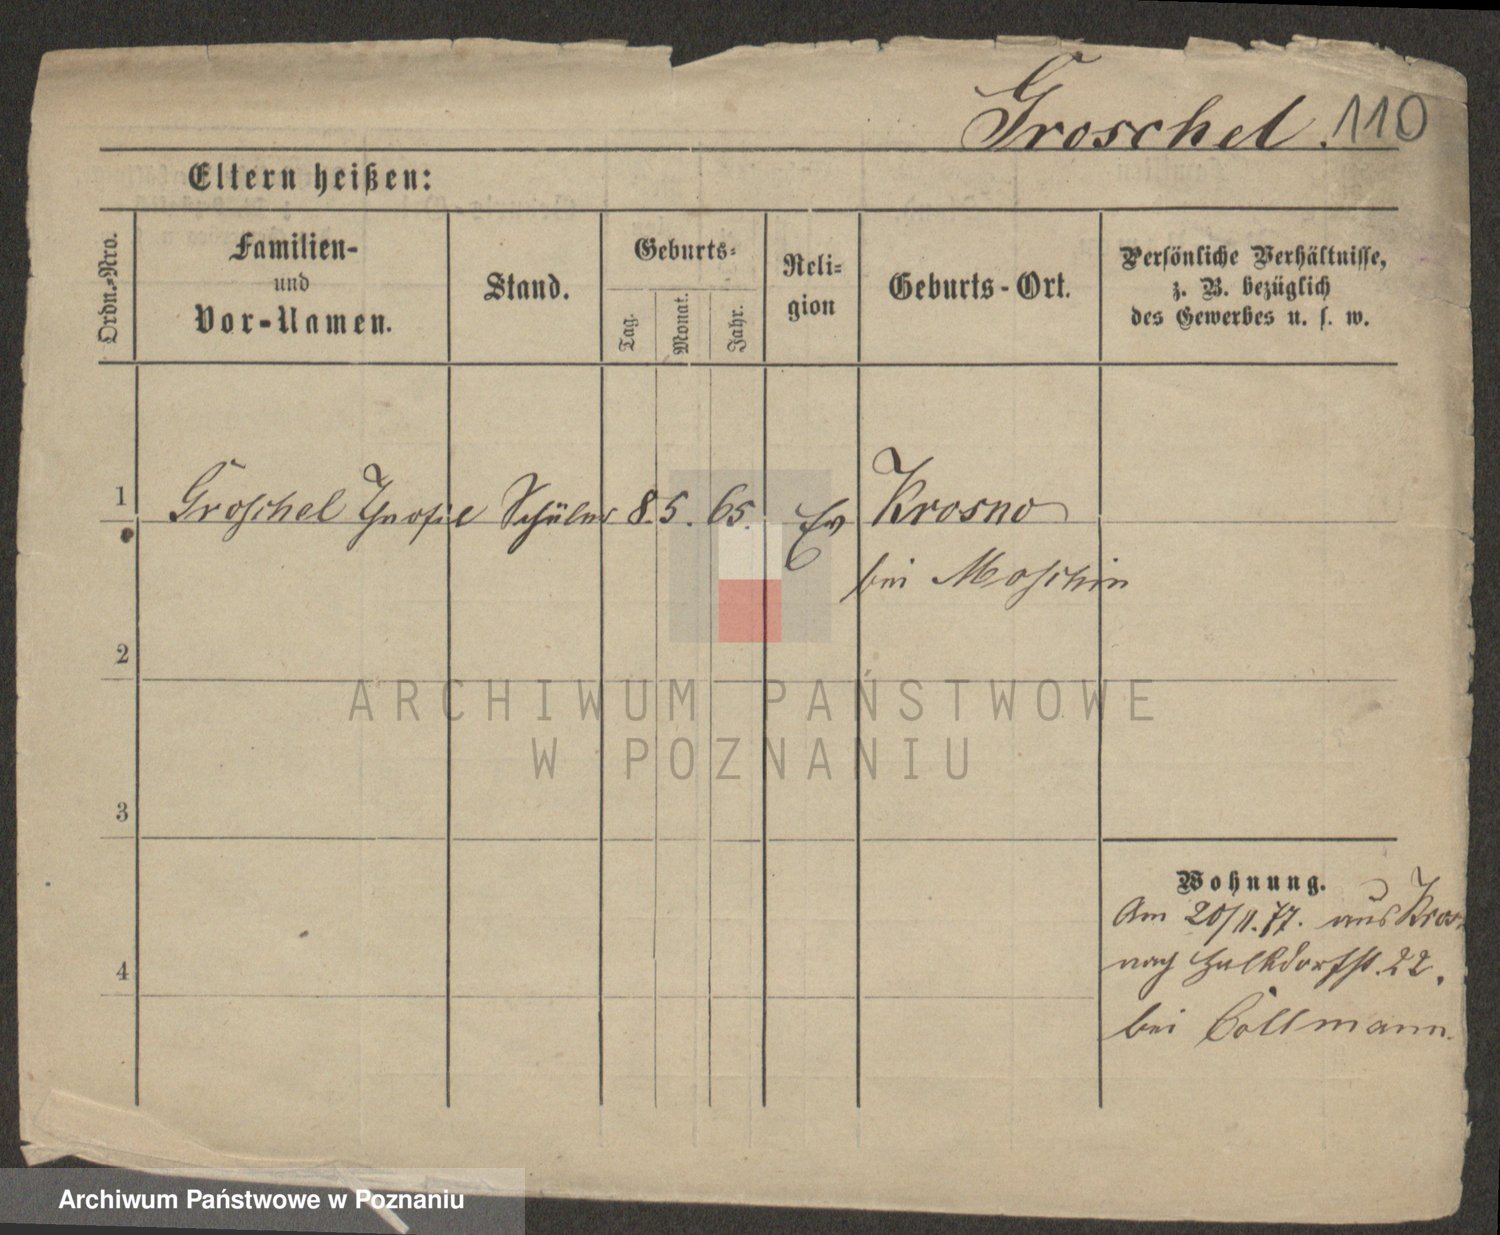 Groschel. 110
Eltern heißen:
Ordn.-Nro.
Familien-
und
Vor-Namen.
Stand.
Geburts-
Tag.
Monat.
Jahr.
Reli-
gion
Geburts-Ort.
Persönliche Verhältnisse,
z. B. bezüglich
des Gewerbes u. s. w.
1 Groschel Schüler 8. 5. 65. Ev Krosno
bei Moschin
2
ARCHIWUM PAŃSTWOWE
W POZNANIU
3
Wohnung.
Am 20/11. 77. aus Kros-
4 nach 22.
bei Collmann.
Archiwum Państwowe w Poznaniu